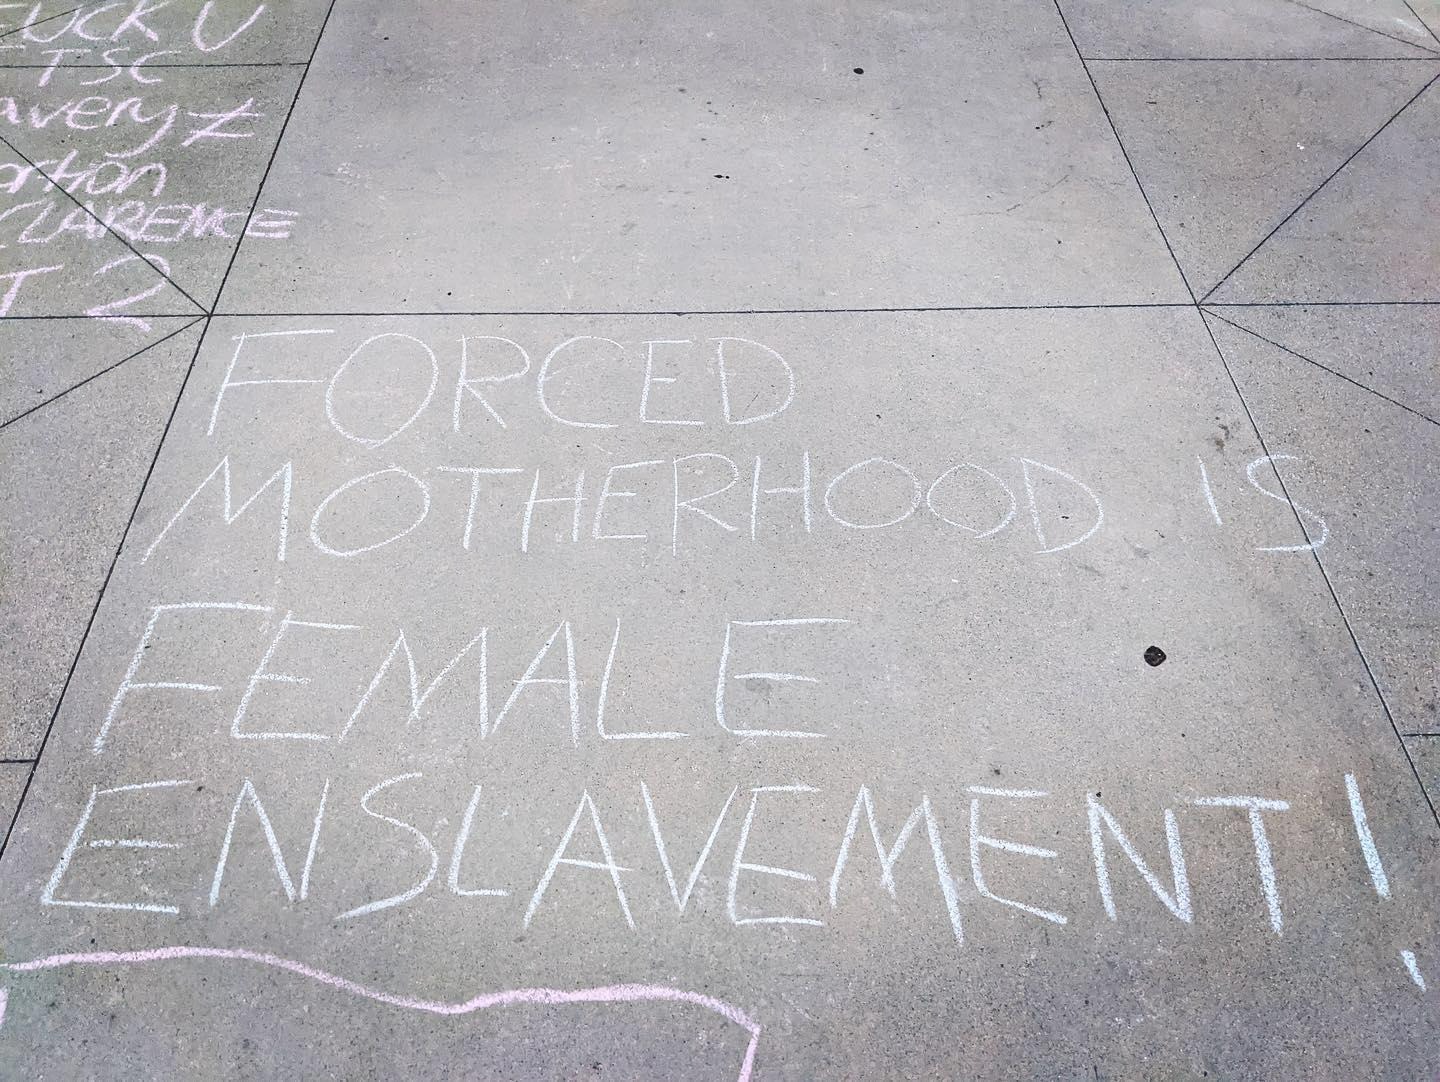 FUCK U
TSC
avery ≠
ortion
CLARENCE
T 2
FORCED
MOTHERHOOD IS
FEMALE
ENSLAVEMENT!